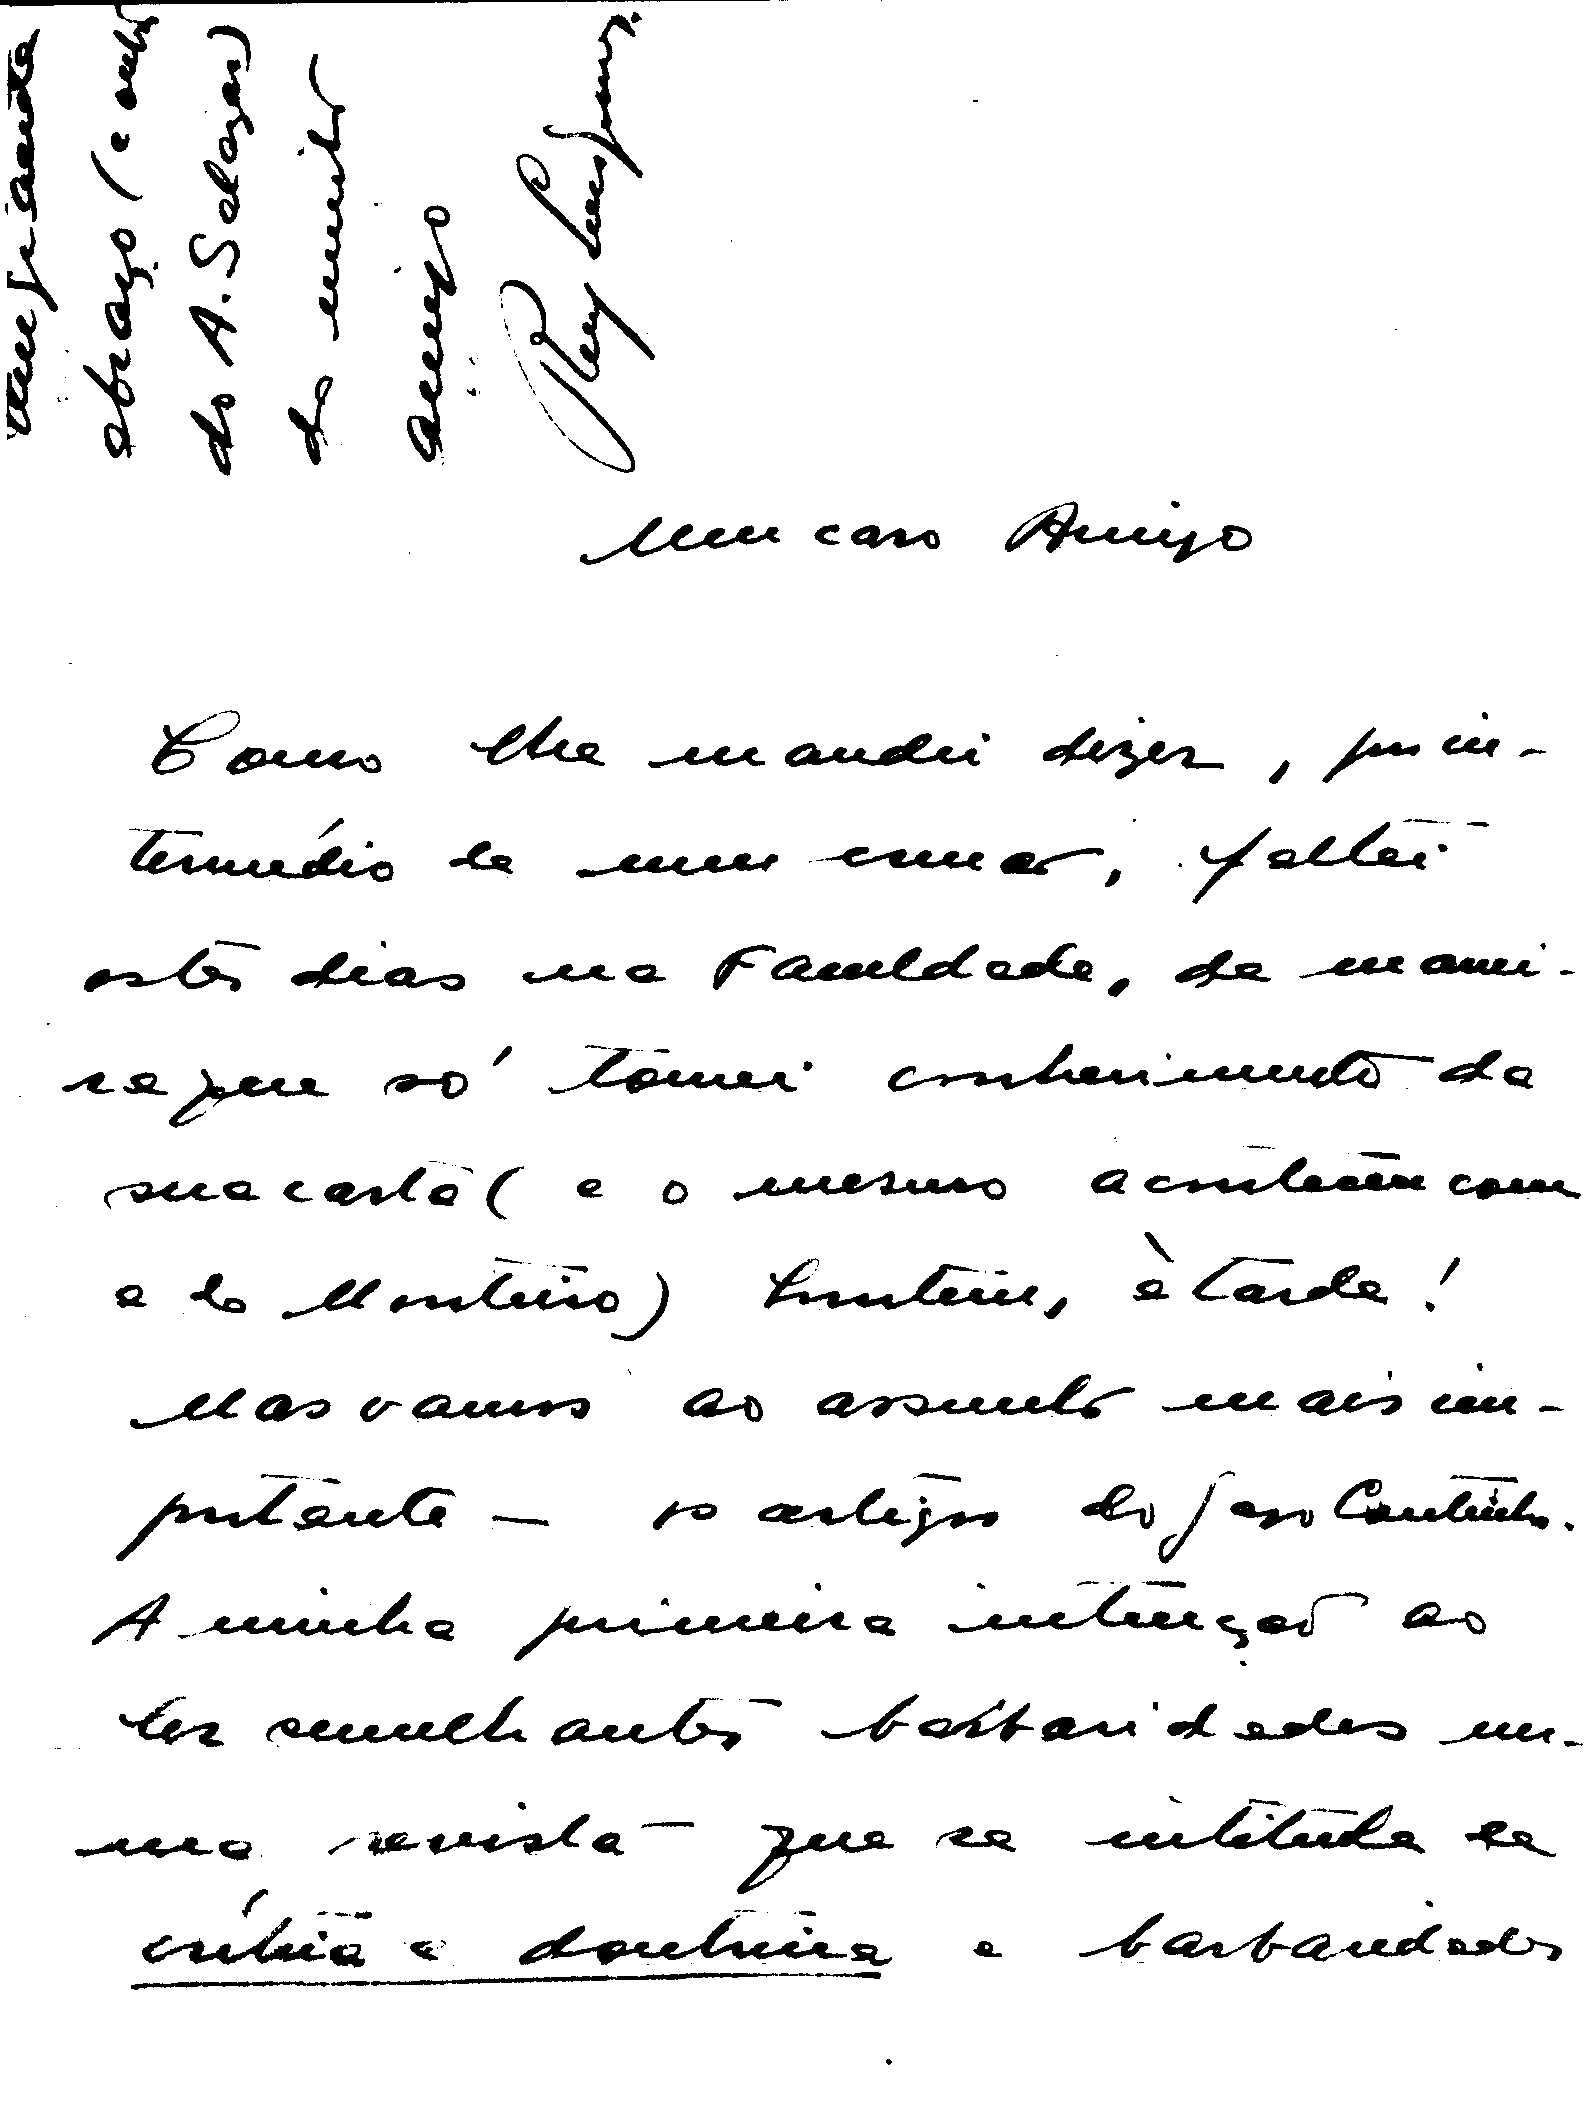 um grande
abraço (e outro
do A. Salazar)
do muito
amigo
Ruy Luis Gomes.
Meu caro Amigo
Como lhe mandei dizer, por in-
termédio de meu cunhado, faltei
estes dias na Faculdade, de manei-
ra que só tomei conhecimento da
sua carta (e o mesmo aconteceu com
a do Monteiro) ontem, à tarde!
Mas vamos ao assunto mais im-
portante — os artigos do Gago Coutinho.
A minha primeira intenção ao
ler semelhantes barbaridades nu-
ma revista que se intitula de
crítica e doutrina e barbaridades